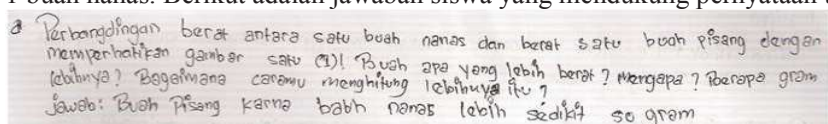 1 buah nanas. Berikut adalah jawaban siswa yang mendukung pernyataan
a Perbangdingan berat antara satu buah nanas dan berat satu buah pisang dengan
memperhatikan gambar satu (1)! Buah apa yang lebih berat? Mengapa? Berapa gram
lebihnya? Bagaimana caramu menghitung lebihnya itu?
Jawab: Buah Pisang karna babh nanas lebih sedikit 50 gram